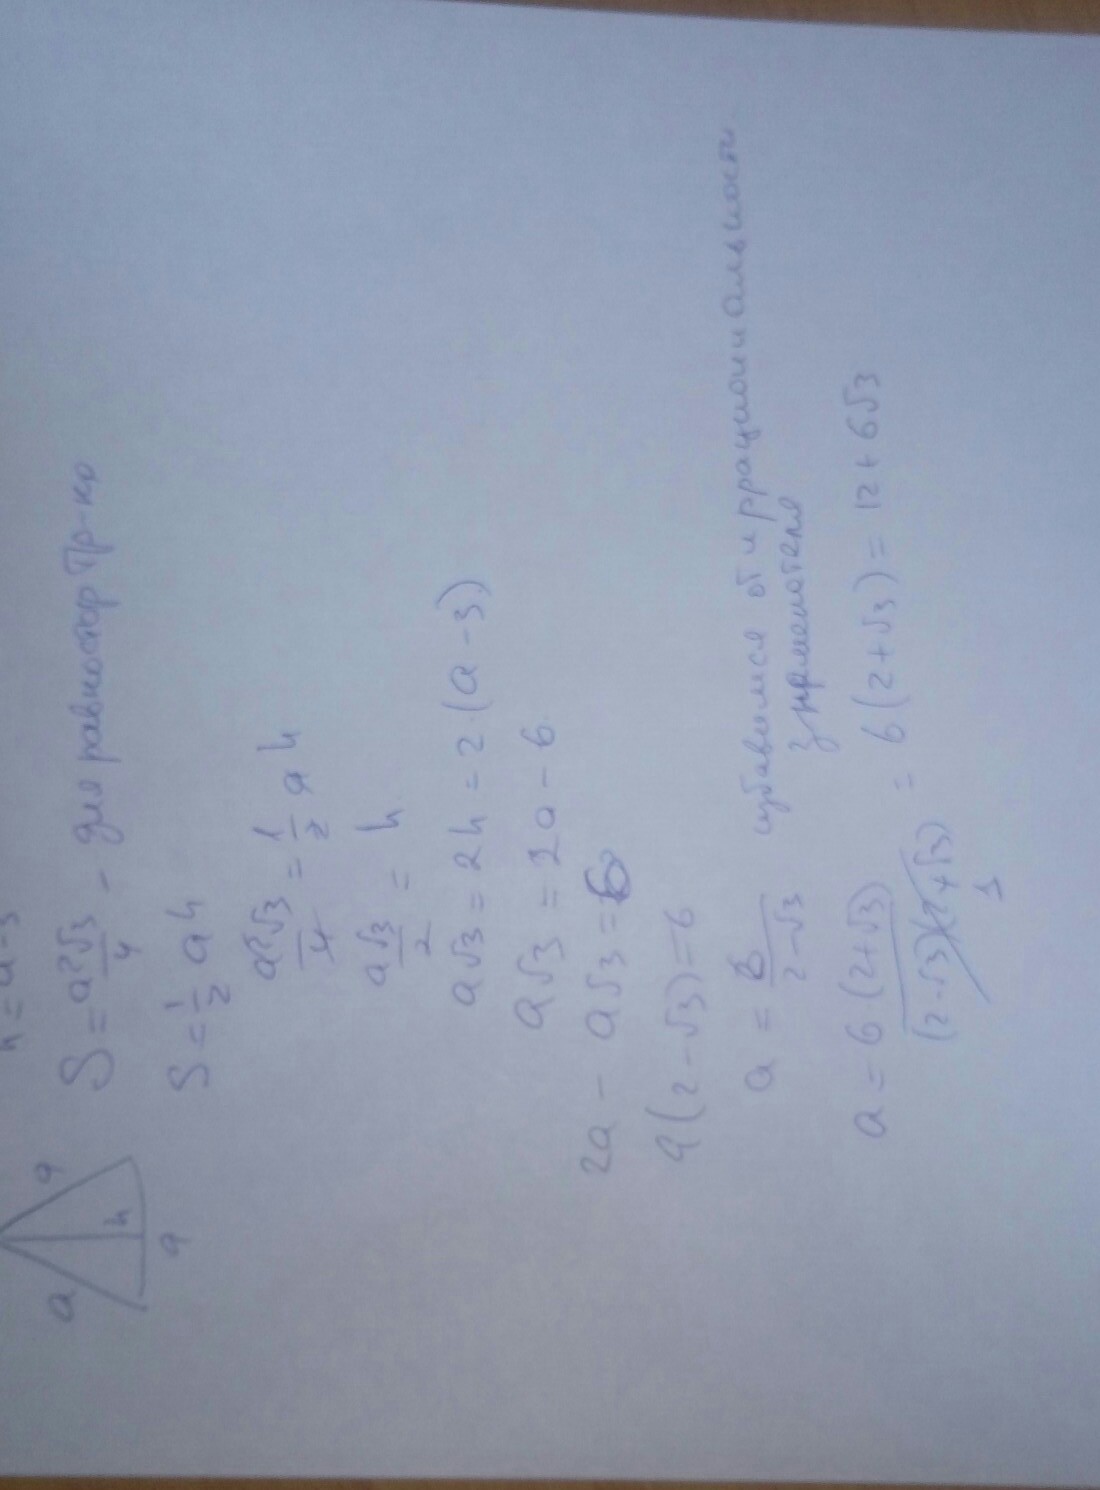 h = a - 3
a a
h
a
S = a²√3/4 - для равностор Тр-ка
S = 1/2 ah
a²√3/4 = 1/2 ah
a√3/2 = h
a√3 = 2h = 2·(a - 3)
a√3 = 2a - 6
2a - a√3 = 6
a(2 - √3) = 6
a = 6/(2 - √3) избавимся от иррациональности
знаменателя
a = 6·(2+√3)/((2-√3)(2+√3)) = 6(2+√3) = 12 + 6√3
1